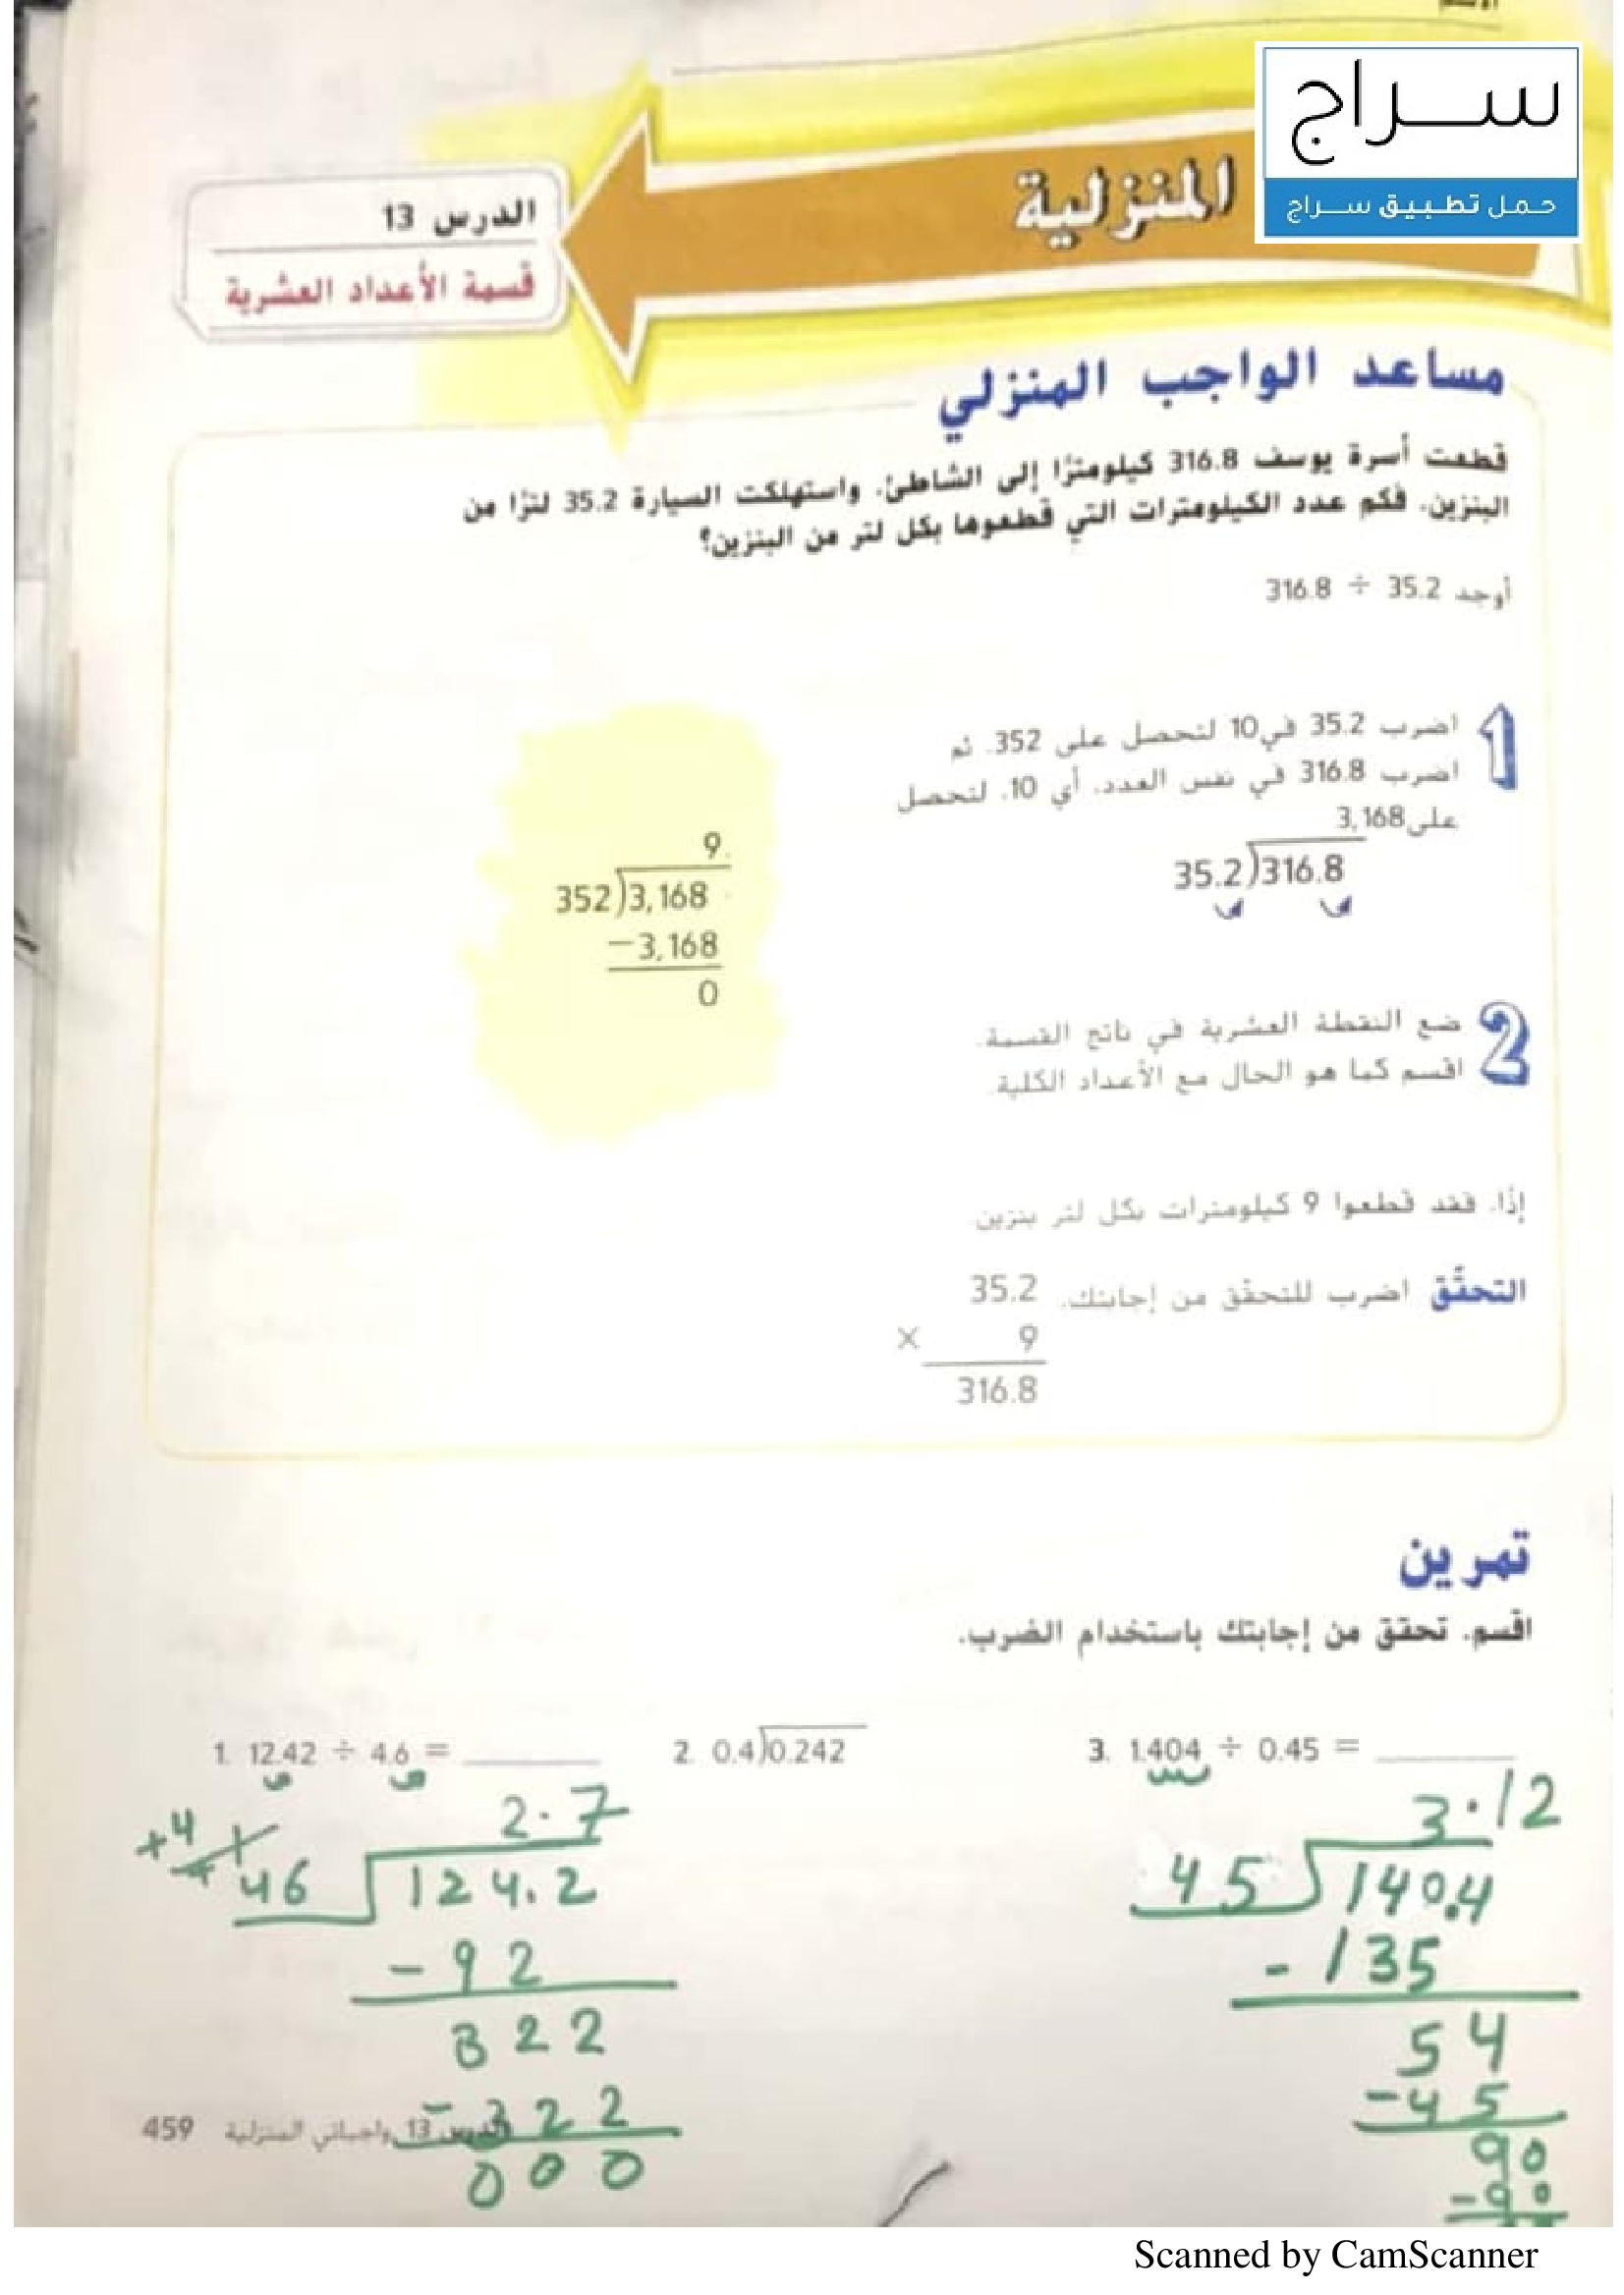 سراج
حمل تطبيق سراج
المنزلية
الدرس 13
قسمة الأعداد العشرية
مساعد الواجب المنزلي
قطعت أسرة يوسف 316.8 كيلومترًا إلى الشاطئ. واستهلكت السيارة 35.2 لترًا من
البنزين. فكم عدد الكيلومترات التي قطعوها بكل لتر من البنزين؟
أوجد 35.2 ÷ 316.8
1 اضرب 35.2 في 10 لتحصل على 352. ثم
اضرب 316.8 في نفس العدد، أي 10. لتحصل
على 3,168
35.2)316.8
9.
352)3,168
−3,168
0
2 ضع النقطة العشرية في ناتج القسمة.
اقسم كما هو الحال مع الأعداد الكلية.
إذًا، فقد قطعوا 9 كيلومترات بكل لتر بنزين.
التحقّق اضرب للتحقّق من إجابتك.
35.2
× 9
316.8
تمرين
اقسم. تحقق من إجابتك باستخدام الضرب.
1. 12.42 ÷ 4.6 =
2. 0.4)0.242
3. 1.404 ÷ 0.45 =
2.7
+4
46 124.2
- 92
322
- 322
000
3.12
45 140.4
- 135
54
- 45
90
- 90
الدرس 13 واجباتي المنزلية 459
Scanned by CamScanner